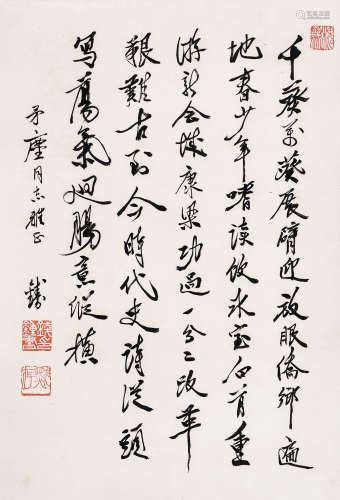 千葵萬葵展臂迎放眼僑鄉遍
地春少年嗜讀飲冰室白首重
游新会城康梁功過一分二改革
艱難古到今時代史詩從頭
寫蕩氣迴腸意縱橫
矛塵同志雅正